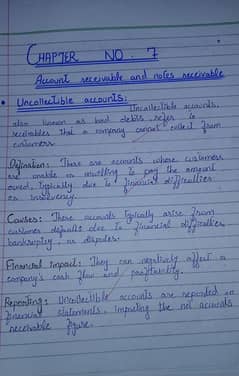 CHAPTER NO. 7
Account receivable and notes receivable
• Uncollectible accounts:
Uncollectible accounts,
also known as bad debts, refer to
receivables that a company cannot collect from
customers
Defination: These are accounts whose customers
are unable or unwilling to pay the amount
owed, typically due to financial difficulties
or insolvency.
Causes: These accounts typically arise from
customer defaults due to financial difficulties,
bankruptcy, or disputes.
Financial Impact: They can negatively affect a
company's cash flow and profitability.
Reporting: Uncollectible accounts are reported in
financial statements, impacting the net accounts
receivable figure.